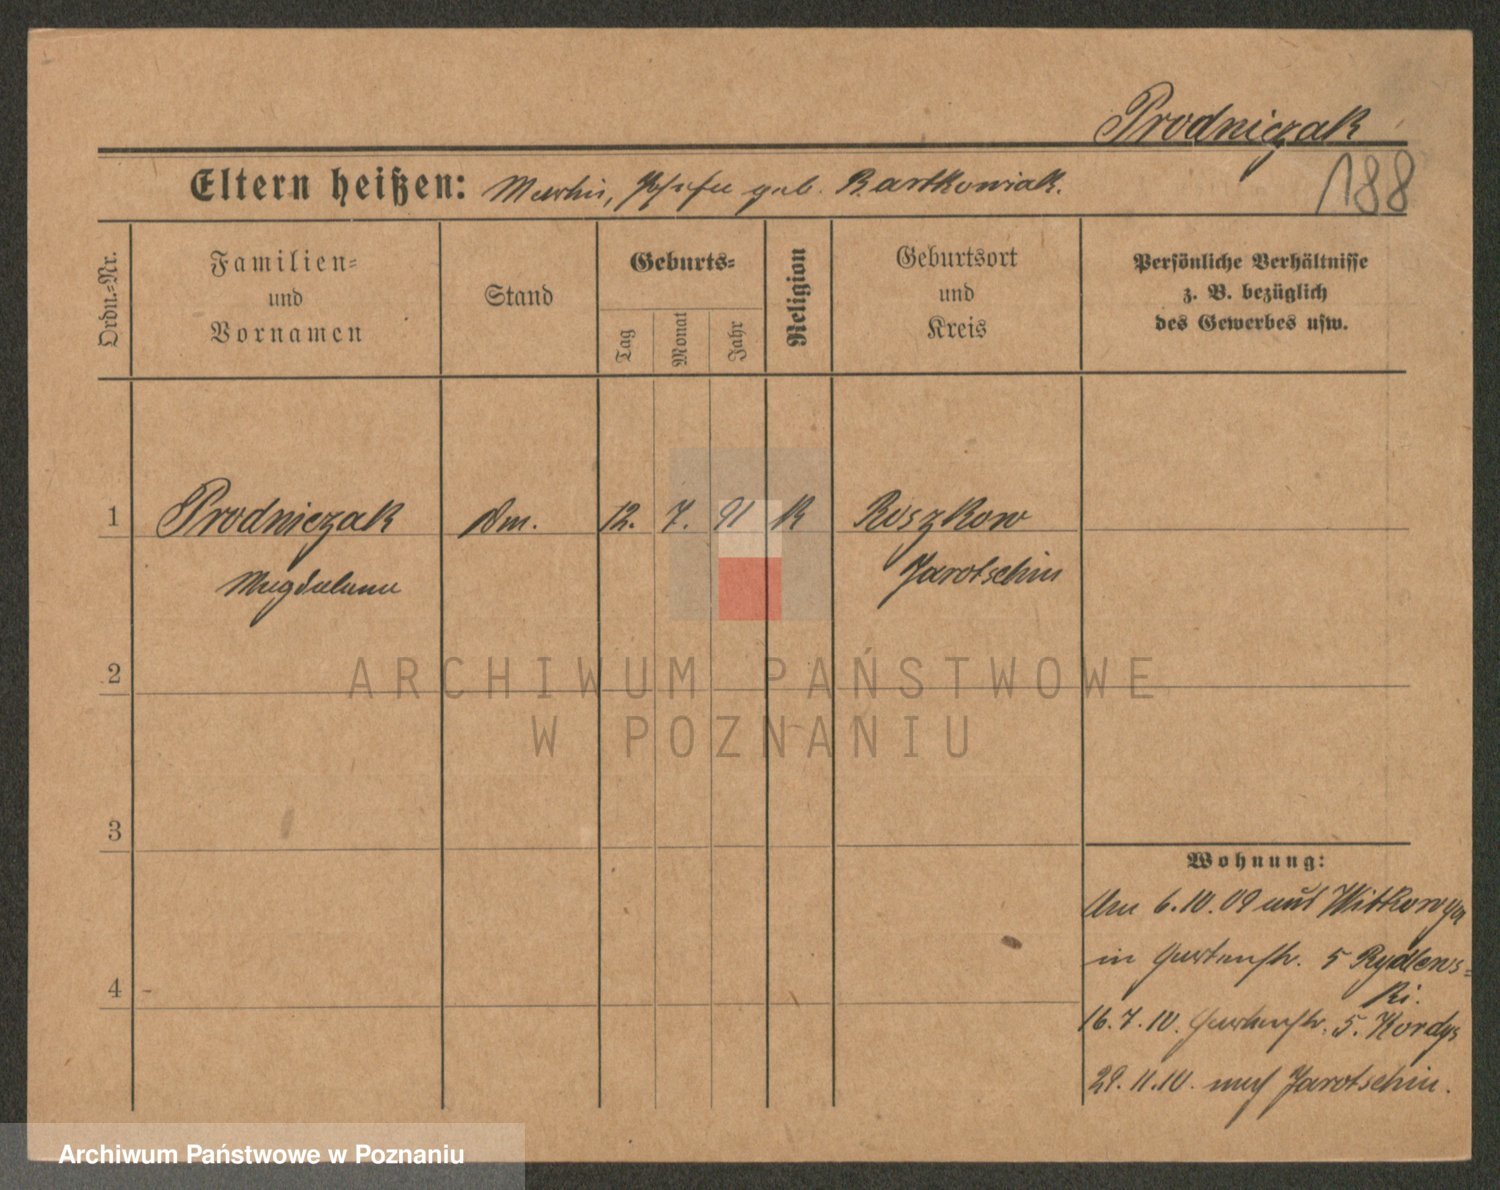 Prodniczak
188
Eltern heißen: Martin, Josefa geb. Bartkowiak.
Ordn.=Nr.
Familien=
und
Vornamen
Stand
Geburts=
Tag
Monat
Jahr
Religion
Geburtsort
und
Kreis
Persönliche Verhältnisse
z. B. bezüglich
des Gewerbes usw.
1 Prodniczak Dm. 12. 7. 91 K Roszkow
Magdalena Jarotschin
2
3
4
Wohnung:
Am 6.10.09 aus Witkowya
in Gartenstr. 5 Rydlews=
ki.
16.7.10. Gartenstr. 5. Kordys
29.11.10. nach Jarotschin.
ARCHIWUM PAŃSTWOWE
W POZNANIU
Archiwum Państwowe w Poznaniu